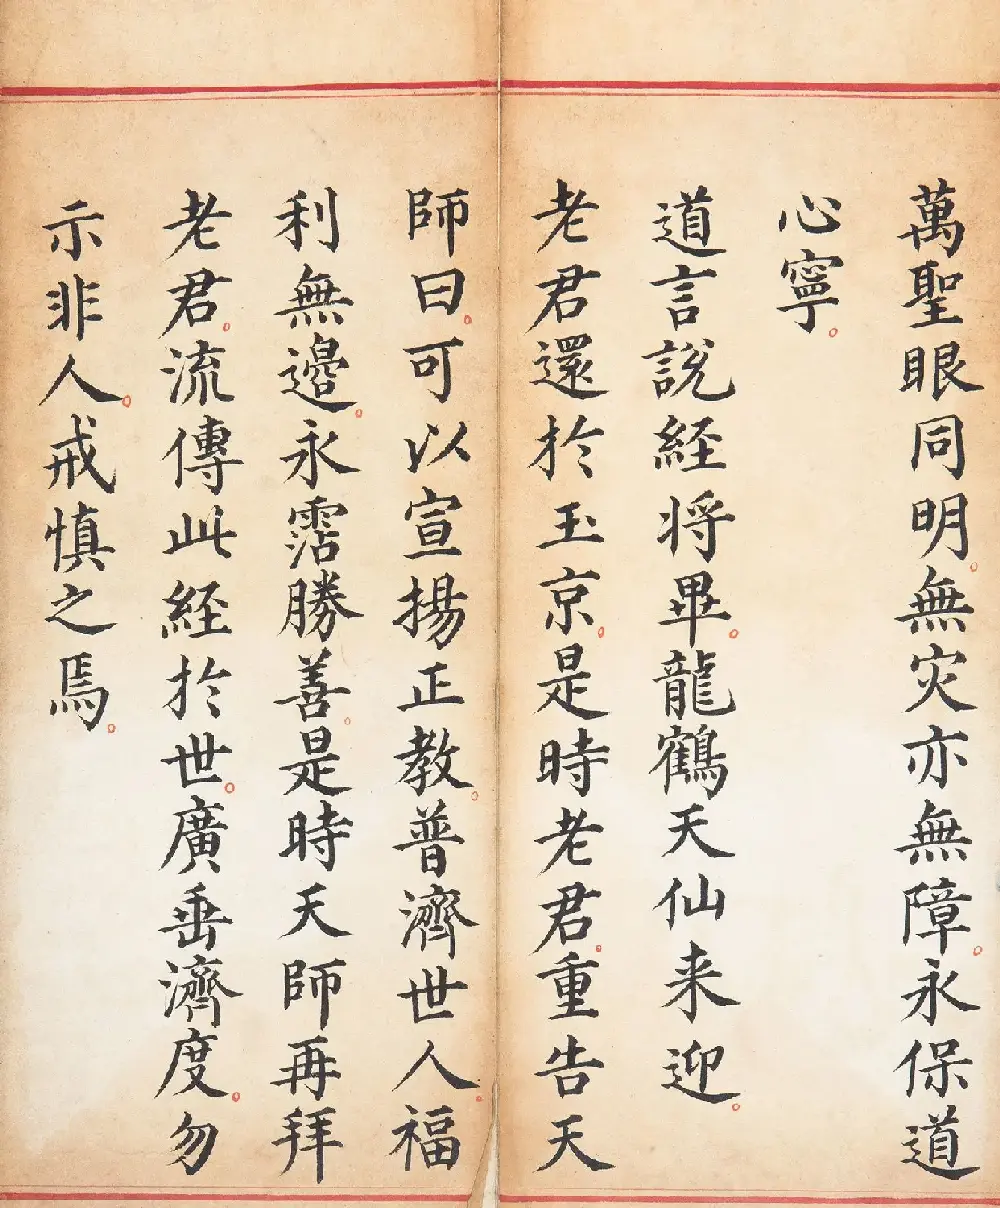 萬聖眼同明。無灾亦無障。永保道
心寧。
道言說経将畢。龍鶴天仙来迎。
老君還於玉京。是時老君。重告天
師曰。可以宣揚正教。普濟世人。福
利無邊。永霑勝善。是時天師再拜
老君。流傳此経於世。廣垂濟度。勿
示非人。戒慎之焉。